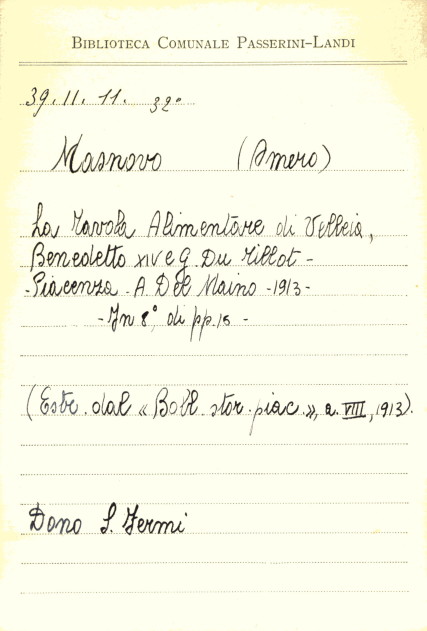 BIBLIOTECA COMUNALE PASSERINI-LANDI
39.II.11. 32°
Masnovo (Omero)
La Tavola Alimentare di Velleia,
Benedetto XIV e G. Du Tillot -
- Piacenza - A. Del Maino - 1913 -
- In 8°, di pp. 15 -
(Estr. dal « Boll. stor. piac. », a. VIII, 1913).
Dono S. Fermi